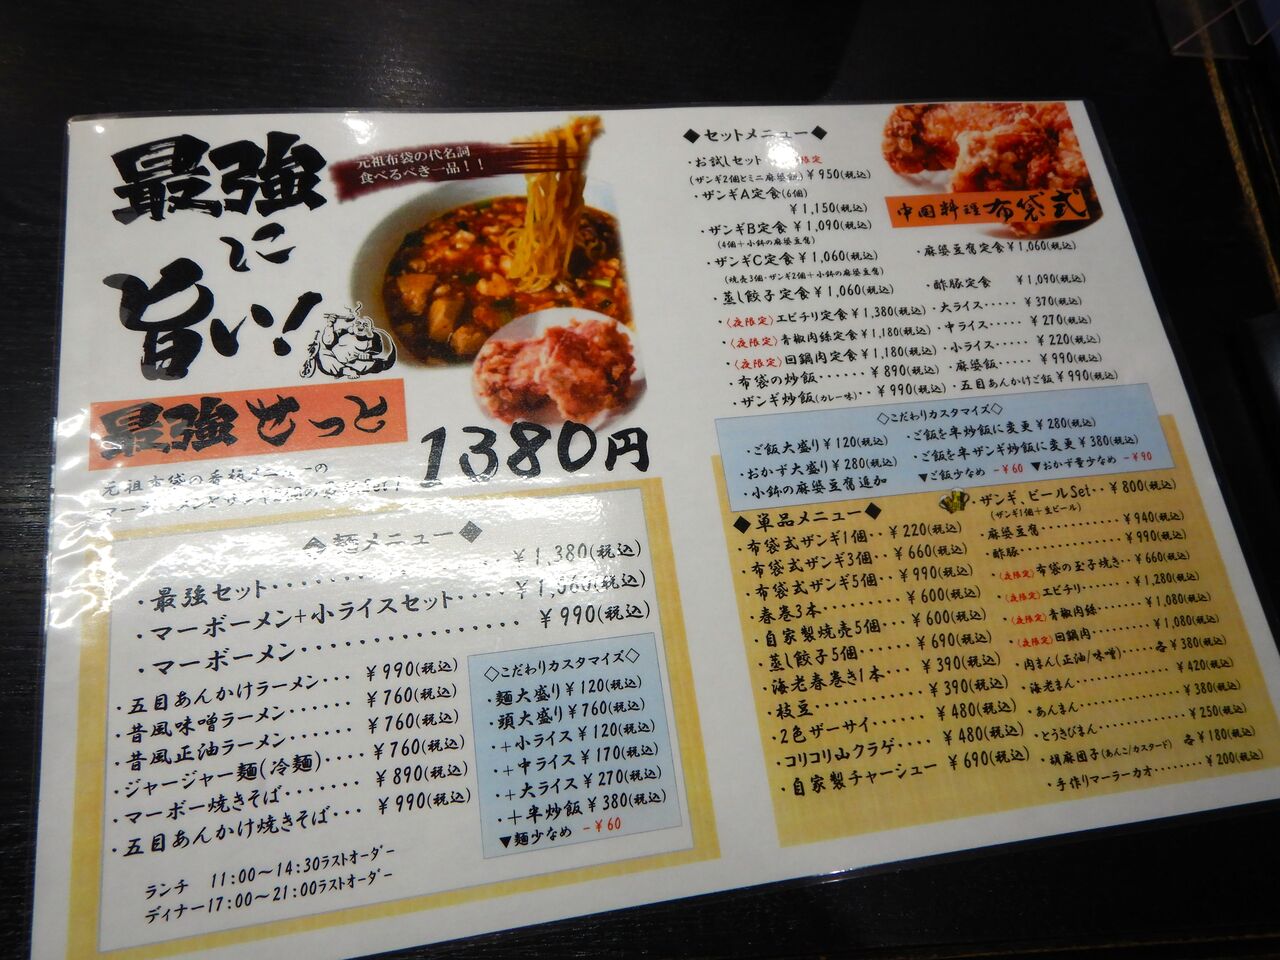 最強
に
旨い!
元祖布袋の代名詞
食べるべき一品!!
最強せっと
1380円
元祖布袋の看板メニューの
◆麺メニュー◆
・最強セット・・・・・・・・・・・・・・・・・・¥1,380(税込)
・マーボーメン+小ライスセット・・・・¥1,060(税込)
・マーボーメン・・・・・・・・・・・・・・・・¥990(税込)
・五目あんかけラーメン・・・¥990(税込)
・昔風味噌ラーメン・・・・・・¥760(税込)
・昔風正油ラーメン・・・・・・¥760(税込)
・ジャージャー麺(冷麺)・・・・¥760(税込)
・マーボー焼きそば・・・・・・・¥890(税込)
・五目あんかけ焼きそば・・・¥990(税込)
◇こだわりカスタマイズ◇
・麺大盛り¥120(税込)
・頭大盛り¥760(税込)
・+小ライス¥120(税込)
・+中ライス¥170(税込)
・+大ライス¥270(税込)
・+半炒飯¥380(税込)
▼麺少なめ -¥60
ランチ 11:00~14:30ラストオーダー
ディナー17:00~21:00ラストオーダー
◆セットメニュー◆
・お試しセット 限定
(ザンギ2個とミニ麻婆麺)¥950(税込)
・ザンギA定食(6個)
¥1,150(税込)
・ザンギB定食¥1,090(税込)
(4個+小鉢の麻婆豆腐)
・ザンギC定食¥1,060(税込)
(焼売3個・ザンギ2個+小鉢の麻婆豆腐)
・蒸し餃子定食¥1,060(税込)
・(夜限定)エビチリ定食¥1,380(税込)
・(夜限定)青椒肉絲定食¥1,180(税込)
・(夜限定)回鍋肉定食¥1,180(税込)
・布袋の炒飯・・・・・・¥890(税込)
・ザンギ炒飯(カレー味)・・¥990(税込)
中国料理布袋式
・麻婆豆腐定食¥1,060(税込)
・酢豚定食 ¥1,090(税込)
・大ライス・・・・・¥370(税込)
・中ライス・・・・・¥270(税込)
・小ライス・・・・・¥220(税込)
・麻婆飯・・・・・・¥990(税込)
・五目あんかけご飯¥990(税込)
◇こだわりカスタマイズ◇
・ご飯大盛り¥120(税込)
・おかず大盛り¥280(税込)
・小鉢の麻婆豆腐追加
・ご飯を半炒飯に変更¥280(税込)
・ご飯を半ザンギ炒飯に変更¥380(税込)
▼ご飯少なめ -¥60 ▼おかず量少なめ -¥90
◆単品メニュー◆
・布袋式ザンギ1個・・¥220(税込)
・布袋式ザンギ3個・・¥660(税込)
・布袋式ザンギ5個・・¥990(税込)
・春巻3本・・・・・・・・・¥600(税込)
・自家製焼売5個・・・¥600(税込)
・蒸し餃子5個・・・・・¥690(税込)
・海老春巻き1本・・・¥390(税込)
・枝豆・・・・・・・・・・・¥390(税込)
・2色ザーサイ・・・・・・¥480(税込)
・コリコリ山クラゲ・・・・¥480(税込)
・自家製チャーシュー¥690(税込)
・ザンギ、ビールSet・・¥800(税込)
(ザンギ1個+生ビール)
・麻婆豆腐・・・・・・・・・・・¥940(税込)
・酢豚・・・・・・・・・・・・・・¥990(税込)
・(夜限定)布袋の玉子焼き・・¥660(税込)
・(夜限定)エビチリ・・・・・・・¥1,280(税込)
・(夜限定)青椒肉絲・・・・・・¥1,080(税込)
・(夜限定)回鍋肉・・・・・・・・¥1,080(税込)
・肉まん(正油/味噌)・・・・・各¥380(税込)
・海老まん・・・・・・・・・・・・・¥420(税込)
・あんまん・・・・・・・・・・・・・¥380(税込)
・とうきびまん・・・・・・・・・・¥250(税込)
・胡麻団子(あんこ/カスタード) 各¥180(税込)
・手作りマーラーカオ・・・・・・・・¥200(税込)